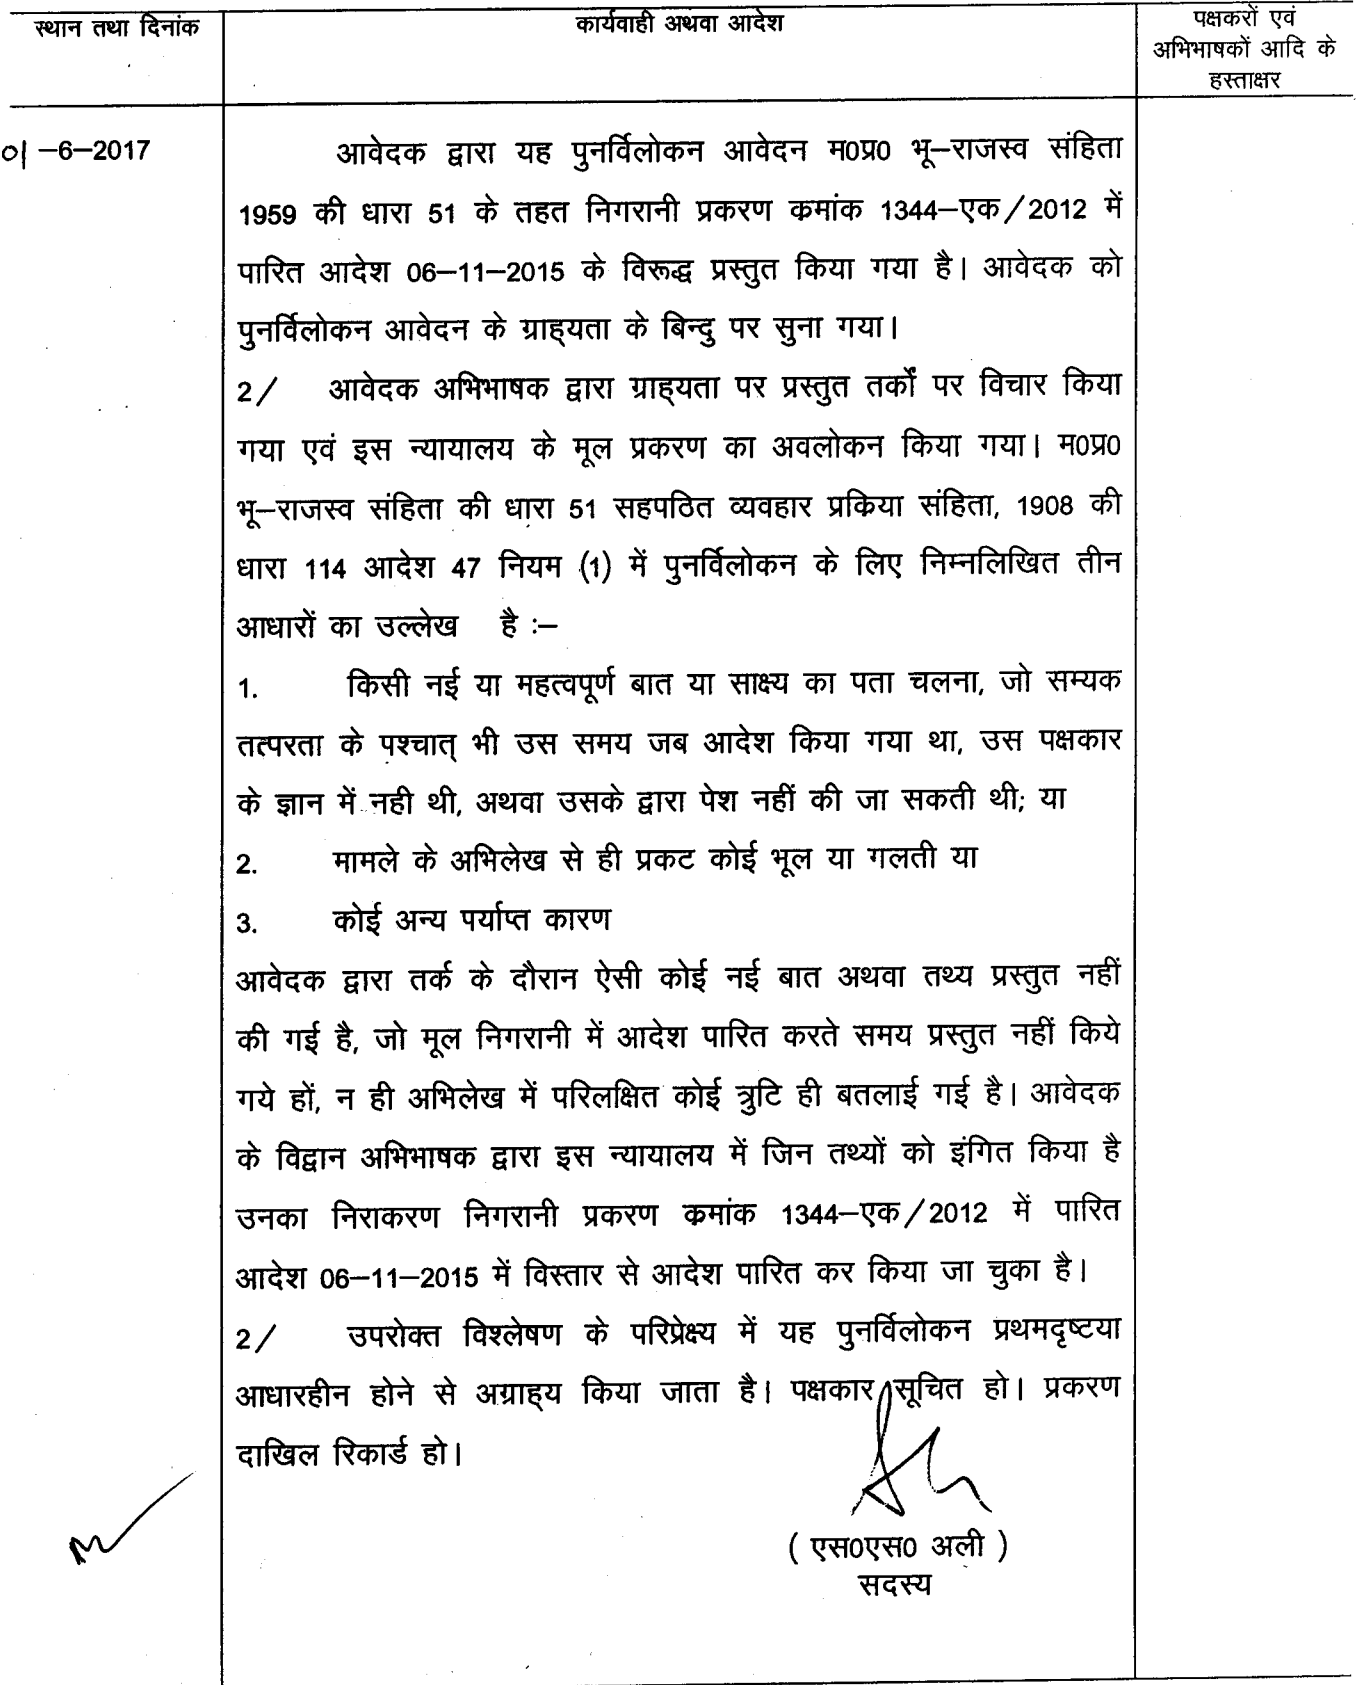 स्थान तथा दिनांक
कार्यवाही अथवा आदेश
पक्षकरों एवं
अभिभाषकों आदि के
हस्ताक्षर
01-6-2017
आवेदक द्वारा यह पुनर्विलोकन आवेदन म0प्र0 भू-राजस्व संहिता
1959 की धारा 51 के तहत निगरानी प्रकरण कमांक 1344-एक/2012 में
पारित आदेश 06-11-2015 के विरूद्ध प्रस्तुत किया गया है। आवेदक को
पुनर्विलोकन आवेदन के ग्राह्यता के बिन्दु पर सुना गया।
2/ आवेदक अभिभाषक द्वारा ग्राह्यता पर प्रस्तुत तर्कों पर विचार किया
गया एवं इस न्यायालय के मूल प्रकरण का अवलोकन किया गया। म0प्र0
भू-राजस्व संहिता की धारा 51 सहपठित व्यवहार प्रकिया संहिता, 1908 की
धारा 114 आदेश 47 नियम (1) में पुनर्विलोकन के लिए निम्नलिखित तीन
आधारों का उल्लेख है :-
1. किसी नई या महत्वपूर्ण बात या साक्ष्य का पता चलना, जो सम्यक
तत्परता के पश्चात् भी उस समय जब आदेश किया गया था, उस पक्षकार
के ज्ञान में नही थी, अथवा उसके द्वारा पेश नहीं की जा सकती थी; या
2. मामले के अभिलेख से ही प्रकट कोई भूल या गलती या
3. कोई अन्य पर्याप्त कारण
आवेदक द्वारा तर्क के दौरान ऐसी कोई नई बात अथवा तथ्य प्रस्तुत नहीं
की गई है, जो मूल निगरानी में आदेश पारित करते समय प्रस्तुत नहीं किये
गये हों, न ही अभिलेख में परिलक्षित कोई त्रुटि ही बतलाई गई है। आवेदक
के विद्वान अभिभाषक द्वारा इस न्यायालय में जिन तथ्यों को इंगित किया है
उनका निराकरण निगरानी प्रकरण कमांक 1344-एक/2012 में पारित
आदेश 06-11-2015 में विस्तार से आदेश पारित कर किया जा चुका है।
2/ उपरोक्त विश्लेषण के परिप्रेक्ष्य में यह पुनर्विलोकन प्रथमदृष्टया
आधारहीन होने से अग्राह्य किया जाता है। पक्षकार सूचित हो। प्रकरण
दाखिल रिकार्ड हो।
( एस0एस0 अली )
सदस्य